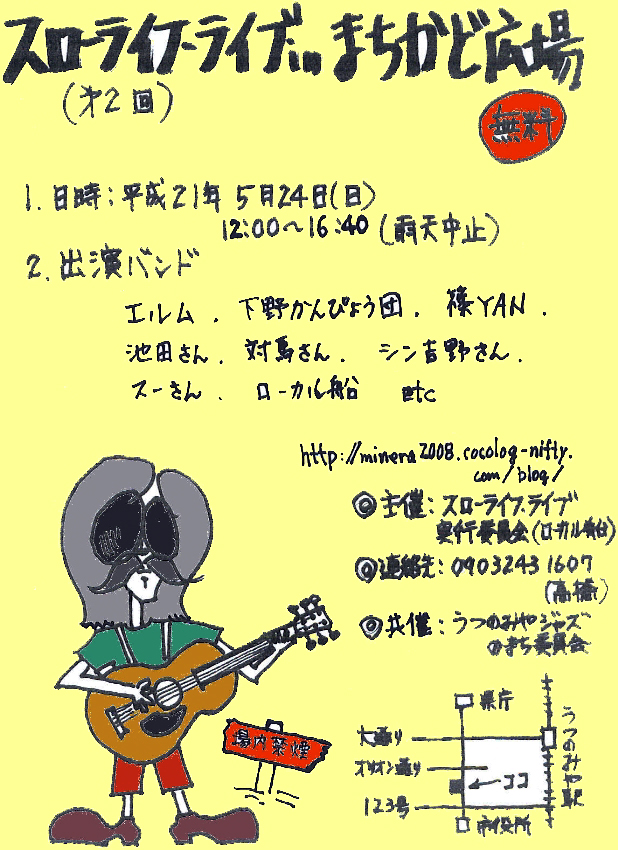 スローライフ・ライブ in まちかど広場
(才2回)
無料
1. 日時：平成21年 5月24日(日)
12:00〜16:40 (雨天中止)
2. 出演バンド
エルム . 下野かんぴょう団 . 篠YAN .
池田さん . 対馬さん . シン吉野さん .
スーさん . ローカル船 etc
http://minera2008.cocolog-nifty.
com/blog/
◎主催：スローライフ・ライブ
実行委員会(ローカル船)
◎連絡先：0903243 1607
(高橋)
◎共催：うつのみやジャズ
のまち委員会
場内禁煙
県庁
大通り
オリオン通り
ココ
123号
市役所
うつのみや駅